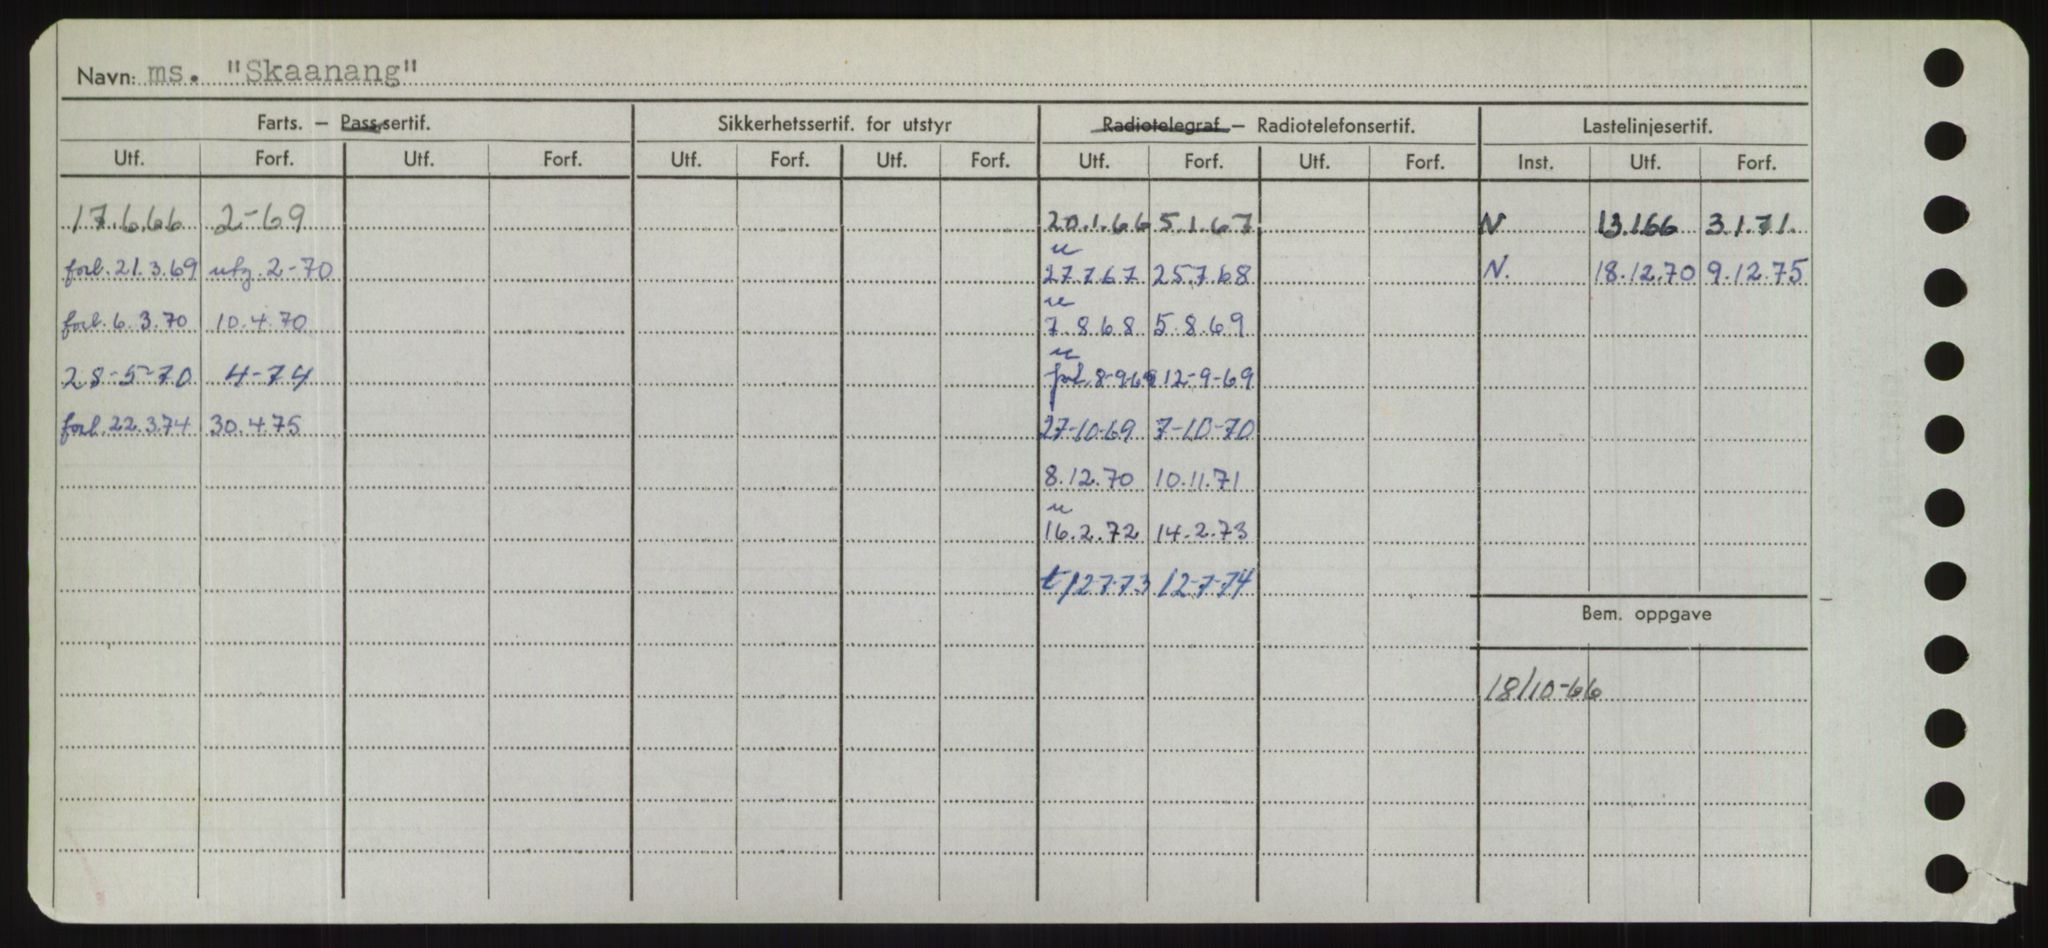 Navn: ms. "Skaanang"
Farts. – Passsertif. Sikkerhetssertif. for utstyr Radiotelegraf – Radiotelefonsertif. Lastelinjesertif.
Utf. Forf. Utf. Forf. Utf. Forf. Utf. Forf. Utf. Forf. Utf. Forf. Inst. Utf. Forf.
17.6.66 2-69 20.1.66 5.1.67 N 13.1.66 3.1.71.
u
forl. 21.3.69 utg. 2-70 27.7.67 25.7.68 N. 18.12.70 9.12.75
u
forl. 6.3.70 10.4.70 7.8.68 5.8.69
u
28-5-70 4-74 forl. 8-9-69 12-9-69
forl. 22.3.74 30.4.75 27-10-69 7-10-70
8.12.70 10.11.71
u
16.2.72 14.2.73
t/12-7-73 12-7-74
Bem. oppgave
18/10-66